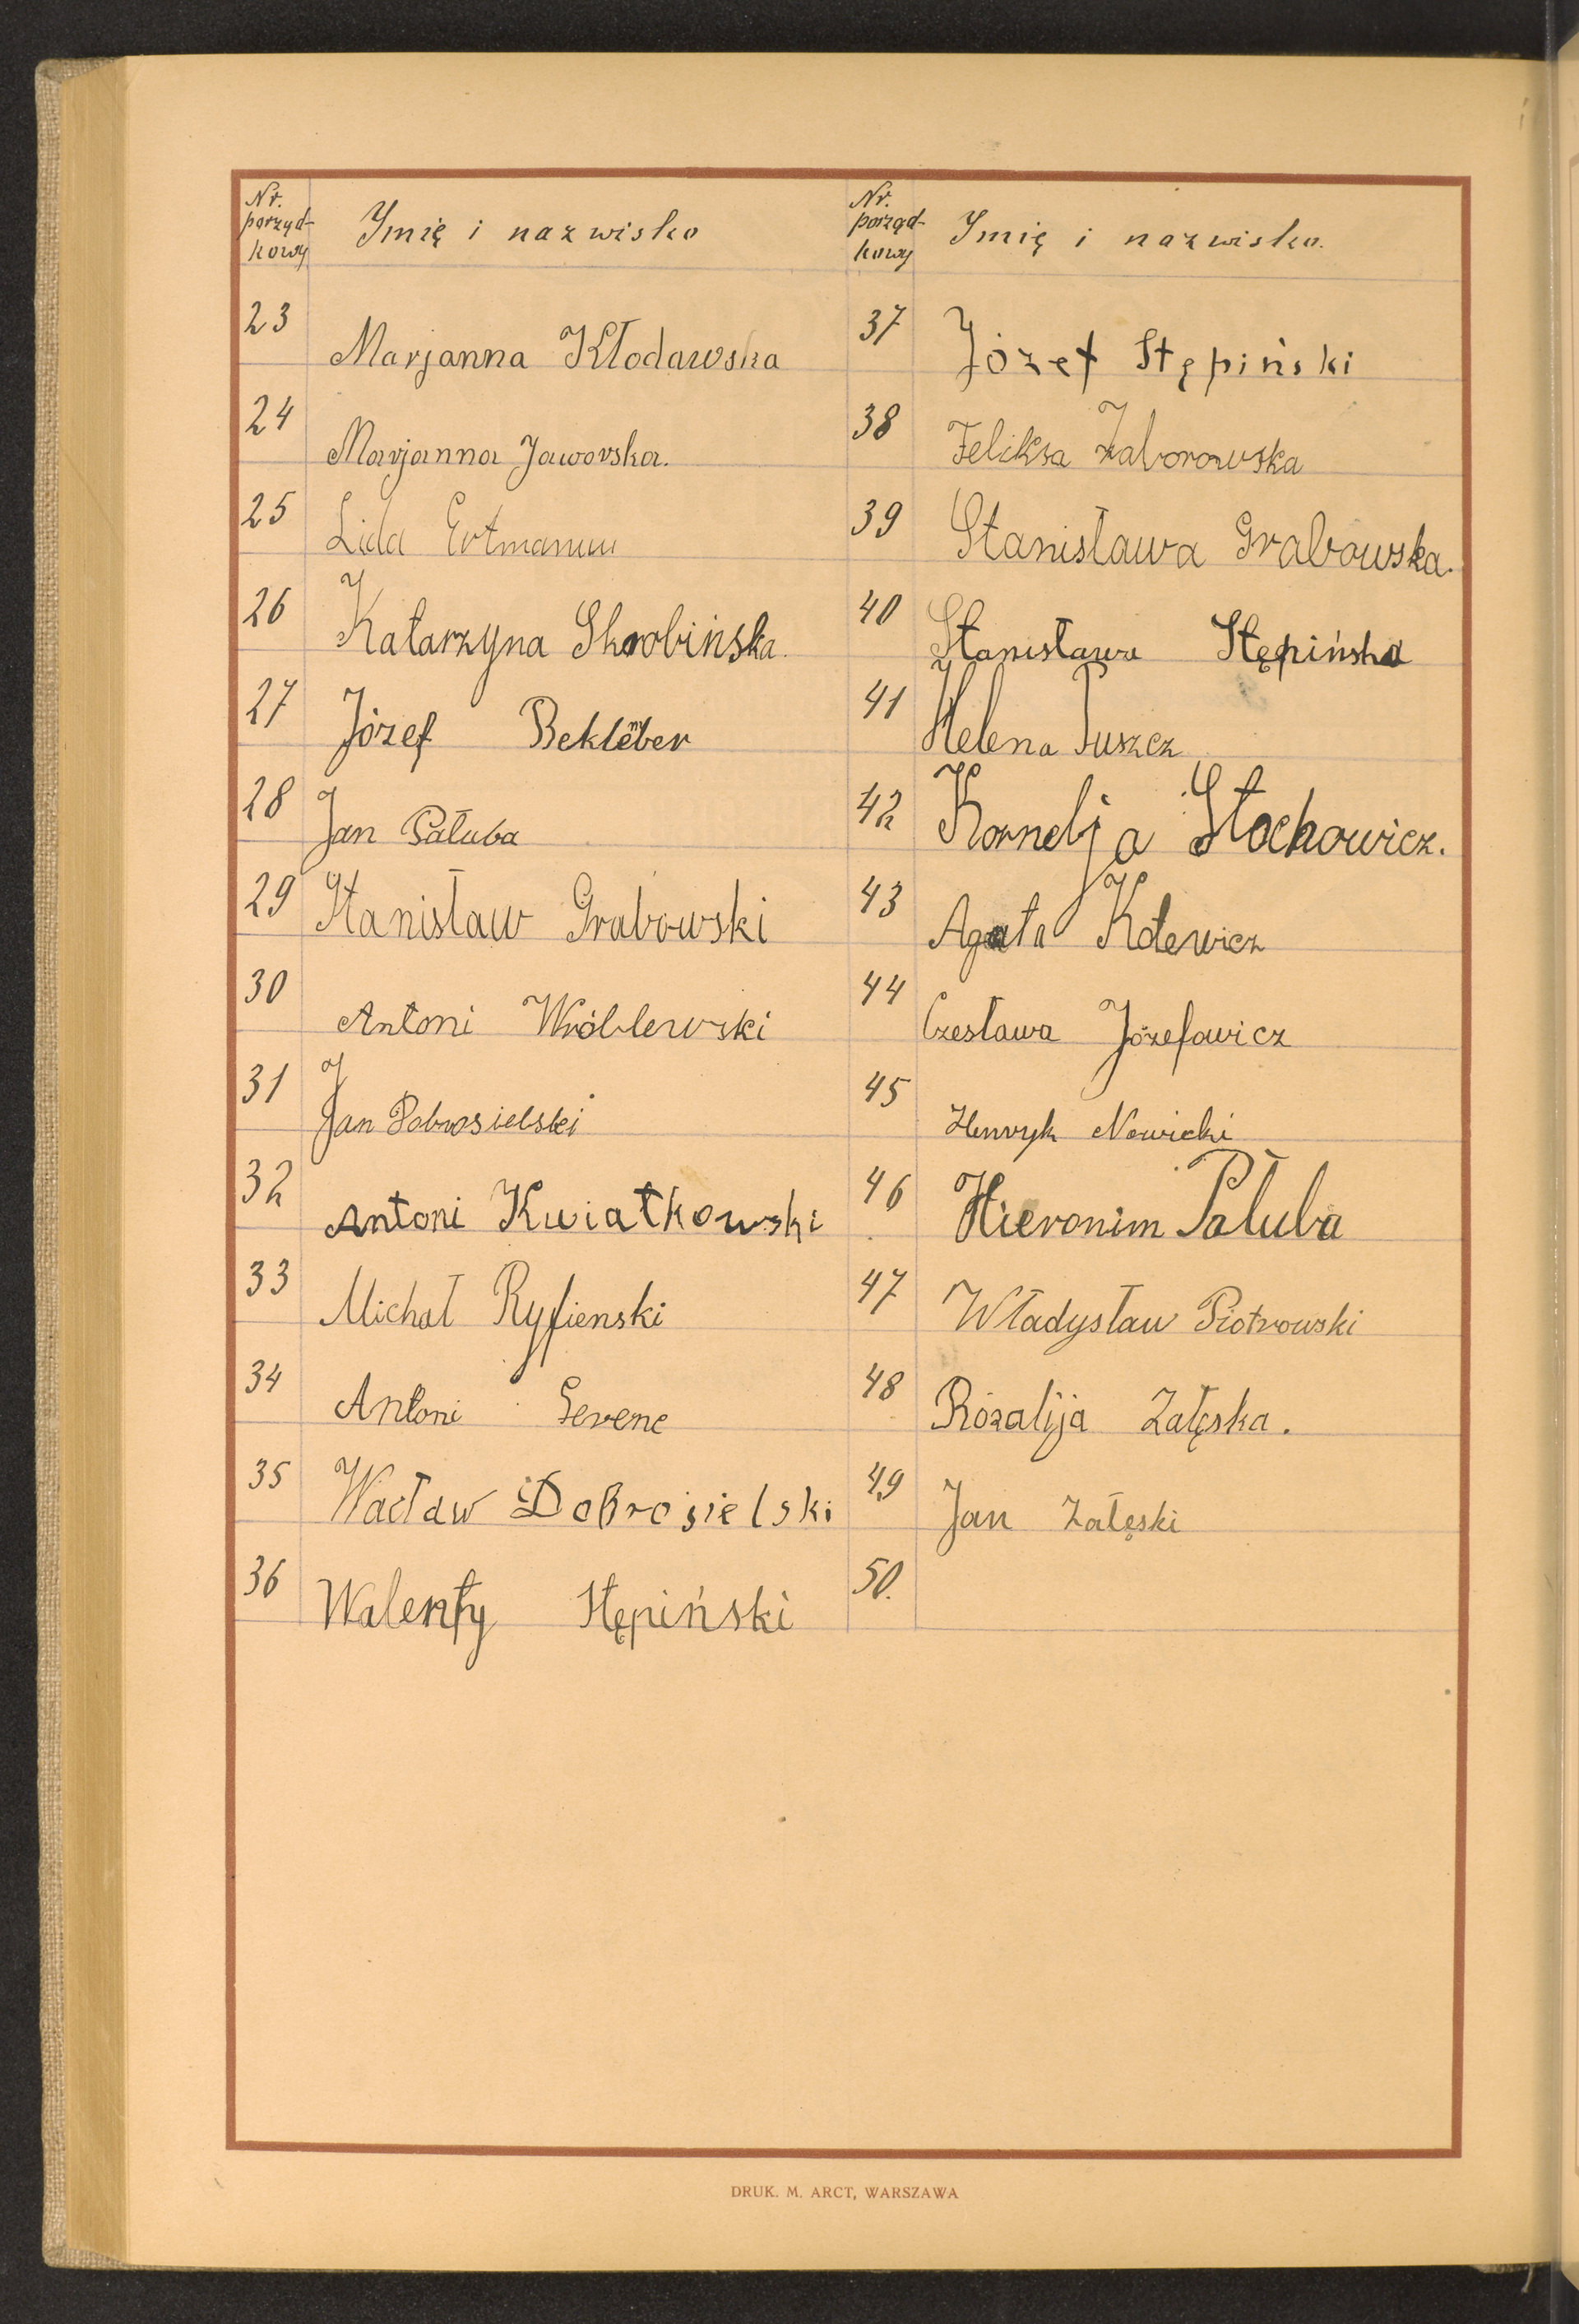 Nr. porząd- kowy
Imię i nazwisko
23 Marjanna Kłodawska
24 Marjanna Jaworska.
25 Lida Ertmann
26 Katarzyna Skrobińska.
27 Józef
28 Jan Pałuba
29 Stanisław Grabowski
30 Antoni Wróblewski
31 Jan Dobrosielski
32 Antoni Kwiatkowski
33 Michał Ryfienski
34 Antoni
35 Wacław Dobrosielski
36 Walenty Stępiński
Nr. porząd- kowy
Imię i nazwisko.
37 Józef Stępiński
38 Feliksa Zaborowska
39 Stanisława Grabowska.
40 Stanisława Stępińska
41 Helena Puszcz
42 Kornelja Stochowicz.
43 Agata Kotewicz
44 Czesława Józefowicz
45 Henryk Nowicki
46 Hieronim Pałuba
47 Władysław Piotrowski
48 Rózalija Załęska.
49 Jan Załęski
50.
DRUK. M. ARCT, WARSZAWA